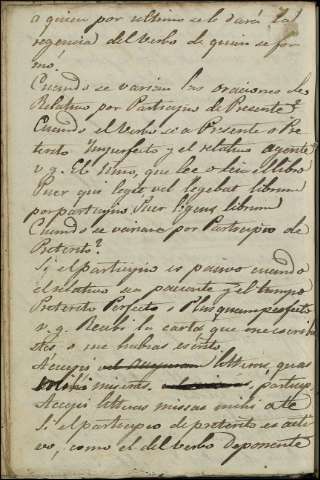 a quien por ultimo se le dará la
regencia del Verbo de quien se for
mó.
Cuando se varian las oraciones de
Relativo por Participio de Presente?
Cuando el Verbo sea Presente o Pre
terito Imperfecto y el relativo agente
v g. El niño, que lee o leia el libro
Puer qui legit vel legebat librum
por participio Puer legens librum
Cuando se variara por Participio de
Preterito?
Si el participio es pasivo cuando
el relativo sea paciente y el tiempo
Preterito Perfecto o Plusquamperfecto
v. g. Recibi la carta que me escribi
stes o me habias escrito.
Accepi litteras, quas
mihi misisti, particip.
Accepi litteras missas mihi a te
Si el participio de preterito es acti
vo, como el del Verbo Deponente